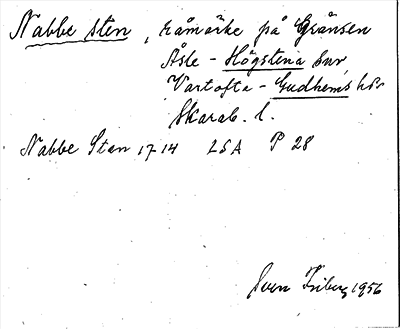 Nabbe sten, råmärke på Gränsen
Åsle - Högstena snr
Vartofta - Gudhems hdr
Skarab. l.
Nabbe Sten 1714 LSA P 28
Sven Friberg 1956